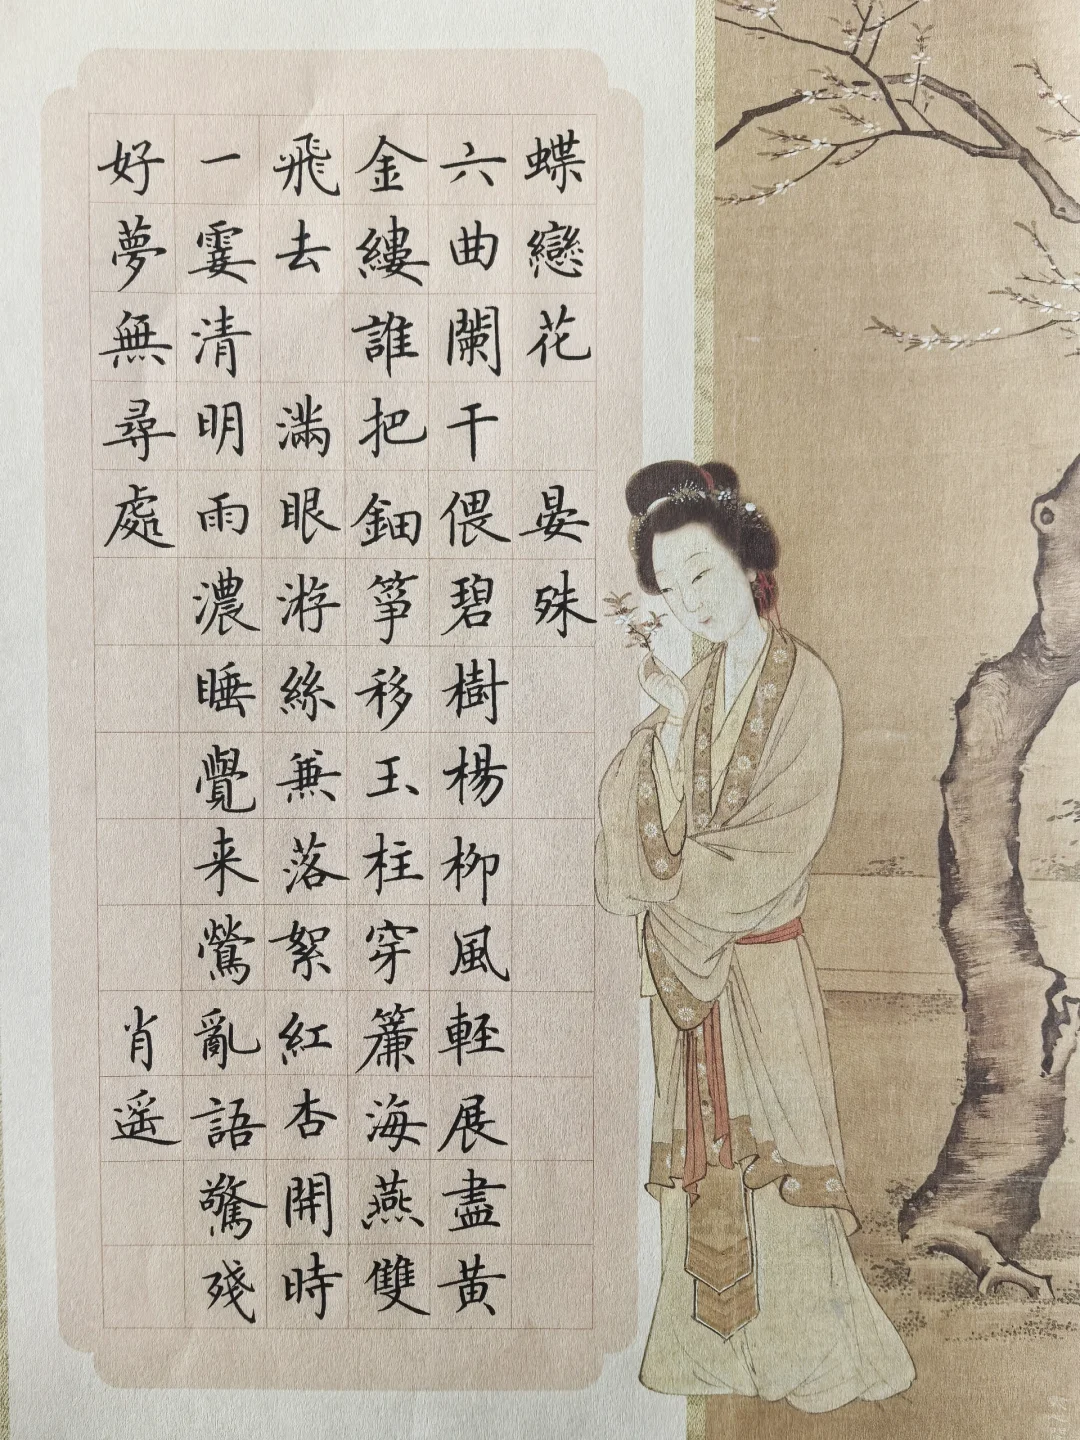 蝶戀花 晏殊
六曲闌干偎碧樹楊柳風軽展盡黃
金縷誰把鈿箏移玉柱穿簾海燕雙
飛去 滿眼游絲兼落絮紅杏開時
一霎清明雨濃睡覺来鶯亂語驚殘
好夢無尋處 肖遥